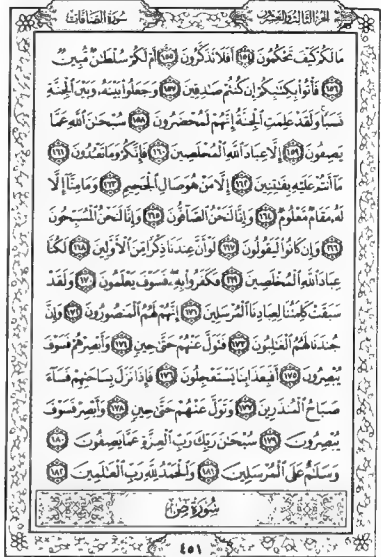 الجزء الثالث والعشرون سورة الصافات
مَالَكُمْ كَيْفَ تَحْكُمُونَ ١٥٤ أَفَلَا تَذَكَّرُونَ ١٥٥ أَمْ لَكُمْ سُلْطَٰنٌ مُّبِينٌ
١٥٦ فَأْتُوا۟ بِكِتَٰبِكُمْ إِن كُنتُمْ صَٰدِقِينَ ١٥٧ وَجَعَلُوا۟ بَيْنَهُۥ وَبَيْنَ ٱلْجِنَّةِ
نَسَبًا وَلَقَدْ عَلِمَتِ ٱلْجِنَّةُ إِنَّهُمْ لَمُحْضَرُونَ ١٥٨ سُبْحَٰنَ ٱللَّهِ عَمَّا
يَصِفُونَ ١٥٩ إِلَّا عِبَادَ ٱللَّهِ ٱلْمُخْلَصِينَ ١٦٠ فَإِنَّكُمْ وَمَا تَعْبُدُونَ ١٦١
مَآ أَنتُمْ عَلَيْهِ بِفَٰتِنِينَ ١٦٢ إِلَّا مَنْ هُوَ صَالِ ٱلْجَحِيمِ ١٦٣ وَمَا مِنَّآ إِلَّا
لَهُۥ مَقَامٌ مَّعْلُومٌ ١٦٤ وَإِنَّا لَنَحْنُ ٱلصَّآفُّونَ ١٦٥ وَإِنَّا لَنَحْنُ ٱلْمُسَبِّحُونَ
١٦٦ وَإِن كَانُوا۟ لَيَقُولُونَ ١٦٧ لَوْ أَنَّ عِندَنَا ذِكْرًا مِّنَ ٱلْأَوَّلِينَ ١٦٨ لَكُنَّا
عِبَادَ ٱللَّهِ ٱلْمُخْلَصِينَ ١٦٩ فَكَفَرُوا۟ بِهِۦ فَسَوْفَ يَعْلَمُونَ ١٧٠ وَلَقَدْ
سَبَقَتْ كَلِمَتُنَا لِعِبَادِنَا ٱلْمُرْسَلِينَ ١٧١ إِنَّهُمْ لَهُمُ ٱلْمَنصُورُونَ ١٧٢ وَإِنَّ
جُندَنَا لَهُمُ ٱلْغَٰلِبُونَ ١٧٣ فَتَوَلَّ عَنْهُمْ حَتَّىٰ حِينٍ ١٧٤ وَأَبْصِرْهُمْ فَسَوْفَ
يُبْصِرُونَ ١٧٥ أَفَبِعَذَابِنَا يَسْتَعْجِلُونَ ١٧٦ فَإِذَا نَزَلَ بِسَاحَتِهِمْ فَسَآءَ
صَبَاحُ ٱلْمُنذَرِينَ ١٧٧ وَتَوَلَّ عَنْهُمْ حَتَّىٰ حِينٍ ١٧٨ وَأَبْصِرْ فَسَوْفَ
يُبْصِرُونَ ١٧٩ سُبْحَٰنَ رَبِّكَ رَبِّ ٱلْعِزَّةِ عَمَّا يَصِفُونَ ١٨٠
وَسَلَٰمٌ عَلَى ٱلْمُرْسَلِينَ ١٨١ وَٱلْحَمْدُ لِلَّهِ رَبِّ ٱلْعَٰلَمِينَ ١٨٢
سُورَةُ صٓ
٤٥١